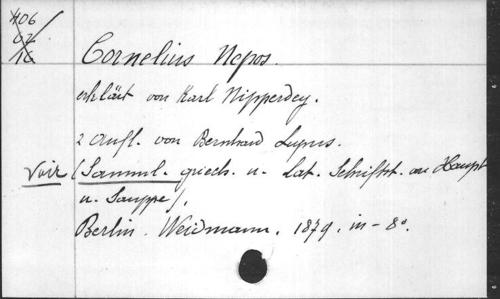 406
Cornelius Nepos.
erklärt von Karl Nipperdey.
2 Aufl. von Bernhard Lupus.
Voir (Samml. griech. u. Lat. Schriftst. von Haupt
u. Sauppe).
Berlin. Weidmann. 1879. in-8°.